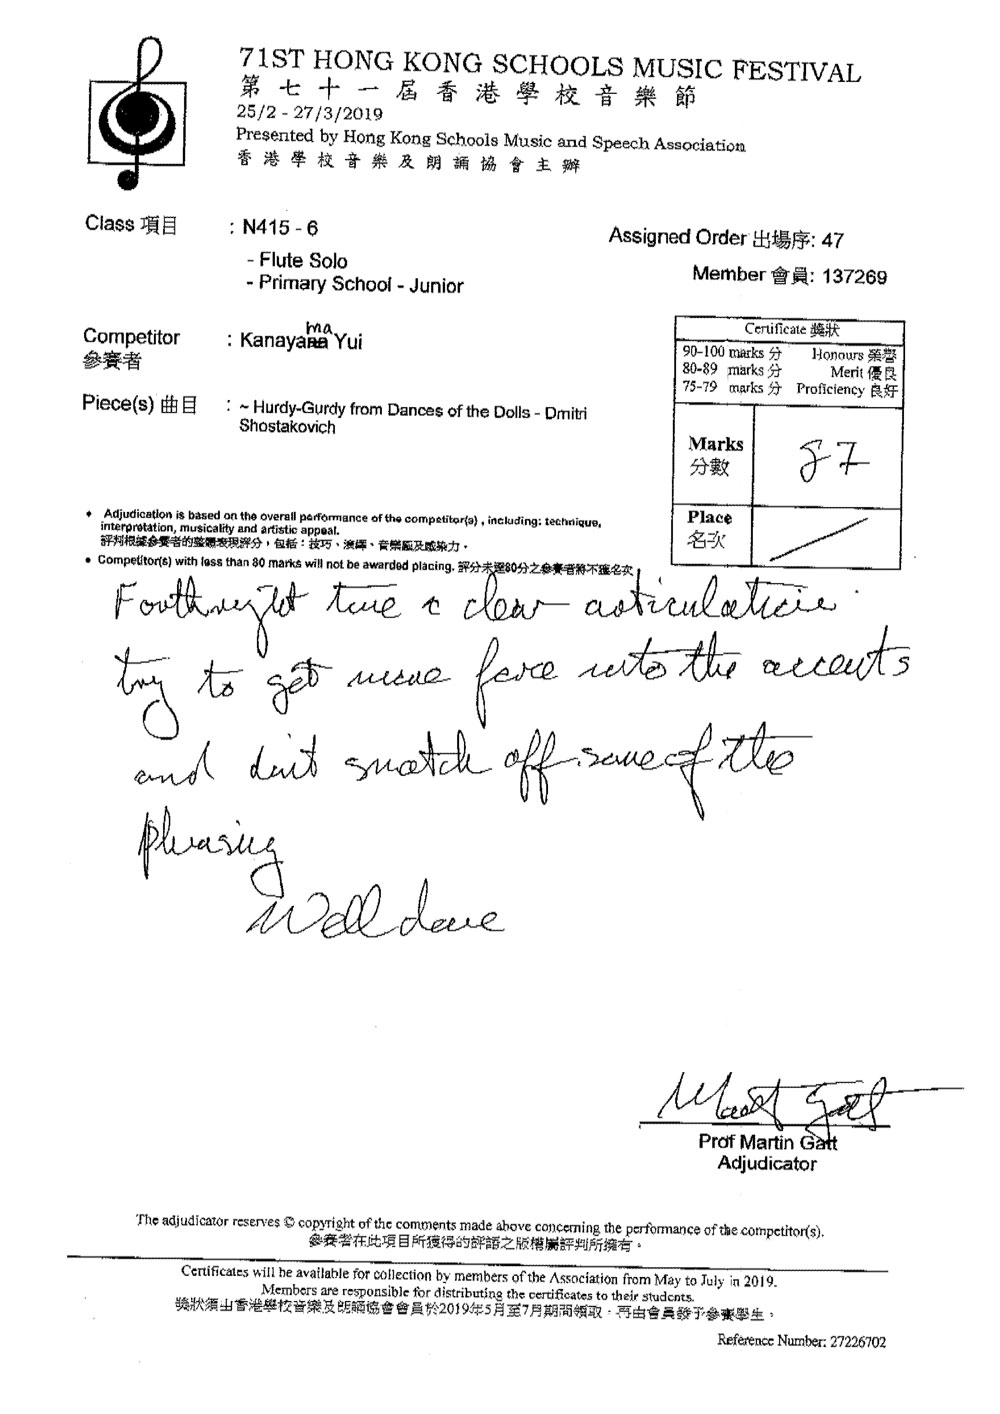 71ST HONG KONG SCHOOLS MUSIC FESTIVAL
第七十一屆香港學校音樂節
25/2 - 27/3/2019
Presented by Hong Kong Schools Music and Speech Association
香港學校音樂及朗誦協會主辦
Class 項目 : N415 - 6
- Flute Solo
- Primary School - Junior
Assigned Order 出場序: 47
Member 會員: 137269
Competitor : Kanayama Yui
參賽者
Piece(s) 曲目 : ~ Hurdy-Gurdy from Dances of the Dolls - Dmitri
Shostakovich
Certificate 獎狀
90-100 marks 分 Honours 榮譽
80-89 marks 分 Merit 優良
75-79 marks 分 Proficiency 良好
Marks 87
分數
Place /
名次
• Adjudication is based on the overall performance of the competitor(s) , including: technique,
interpretation, musicality and artistic appeal.
評判根據參賽者的整體表現評分，包括：技巧、演繹、音樂感及感染力。
• Competitor(s) with less than 80 marks will not be awarded placing. 評分未達80分之參賽者將不獲名次。
Forthright tone & clear articulation.
try to get more force into the accents
and don't snatch off some of the
phrasing
Well done
Martin Gatt
Prof Martin Gatt
Adjudicator
The adjudicator reserves © copyright of the comments made above concerning the performance of the competitor(s).
參賽者在此項目所獲得的評語之版權屬評判所擁有。
Certificates will be available for collection by members of the Association from May to July in 2019.
Members are responsible for distributing the certificates to their students.
獎狀須由香港學校音樂及朗誦協會會員於2019年5月至7月期間領取，再由會員發予參賽學生。
Reference Number: 27226702